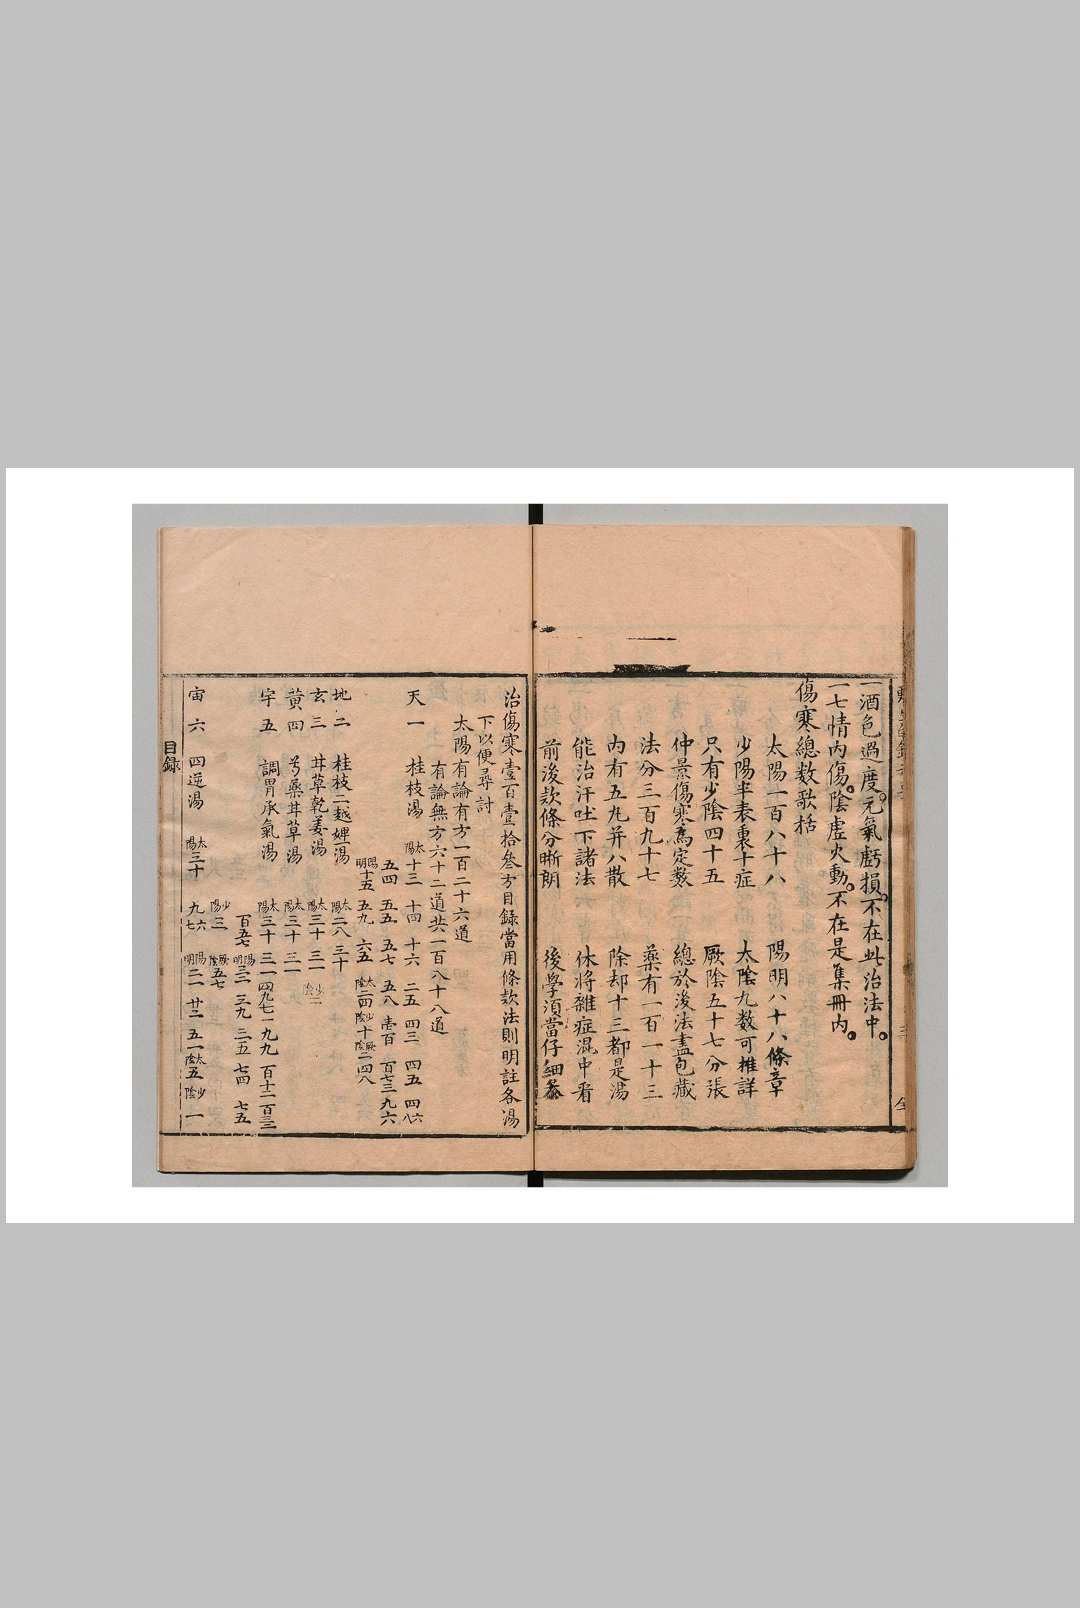 一酒色過度元氣虧損不在此治法中
一七情内傷陰虚火動不在是集冊内
傷寒總数歌括
太陽一百八十八 陽明八十八條章
少陽半表裏十症 太陰九数可推詳
只有少陰四十五 厥陰五十七分張
仲景傷寒為定数 總於後法盡包藏
法分三百九十七 藥有一百一十三
内有五九并八散 除却十三都是湯
能治汗吐下諸法 休将雜症混中看
前後款條分晰朗 後學須當仔細叅
治傷寒壹百壹拾叄方目録當用條款法則明註各湯
下以便尋討
太陽有論有方一百二十六道
有論無方六十二道共一百八十八道
天一 桂枝湯 太陽十三 十四 十六 二五 四三 四五 四六八
五四 五五 五七 五八 壹百 百七三 九六
陽明十五 五九 六五 太陰二四 少陰十 厥陰二四八
地二 桂枝二越婢一湯 太陽二八 三十
玄三 甘草乾姜湯 太陽三十 三一 少陰二
黄四 芍藥甘草湯 太陽三十 三一
宇五 調胃承氣湯 太陽三十 三一 四九 七一 九九 百十二 百三三
百五七 陽明三二 三九 三五 七四 七五
少陽三 厥陰五七
宙六 四逆湯 太陽三十 九六七 陽明二一 廿二 五一 太陰五 少陰一
目録